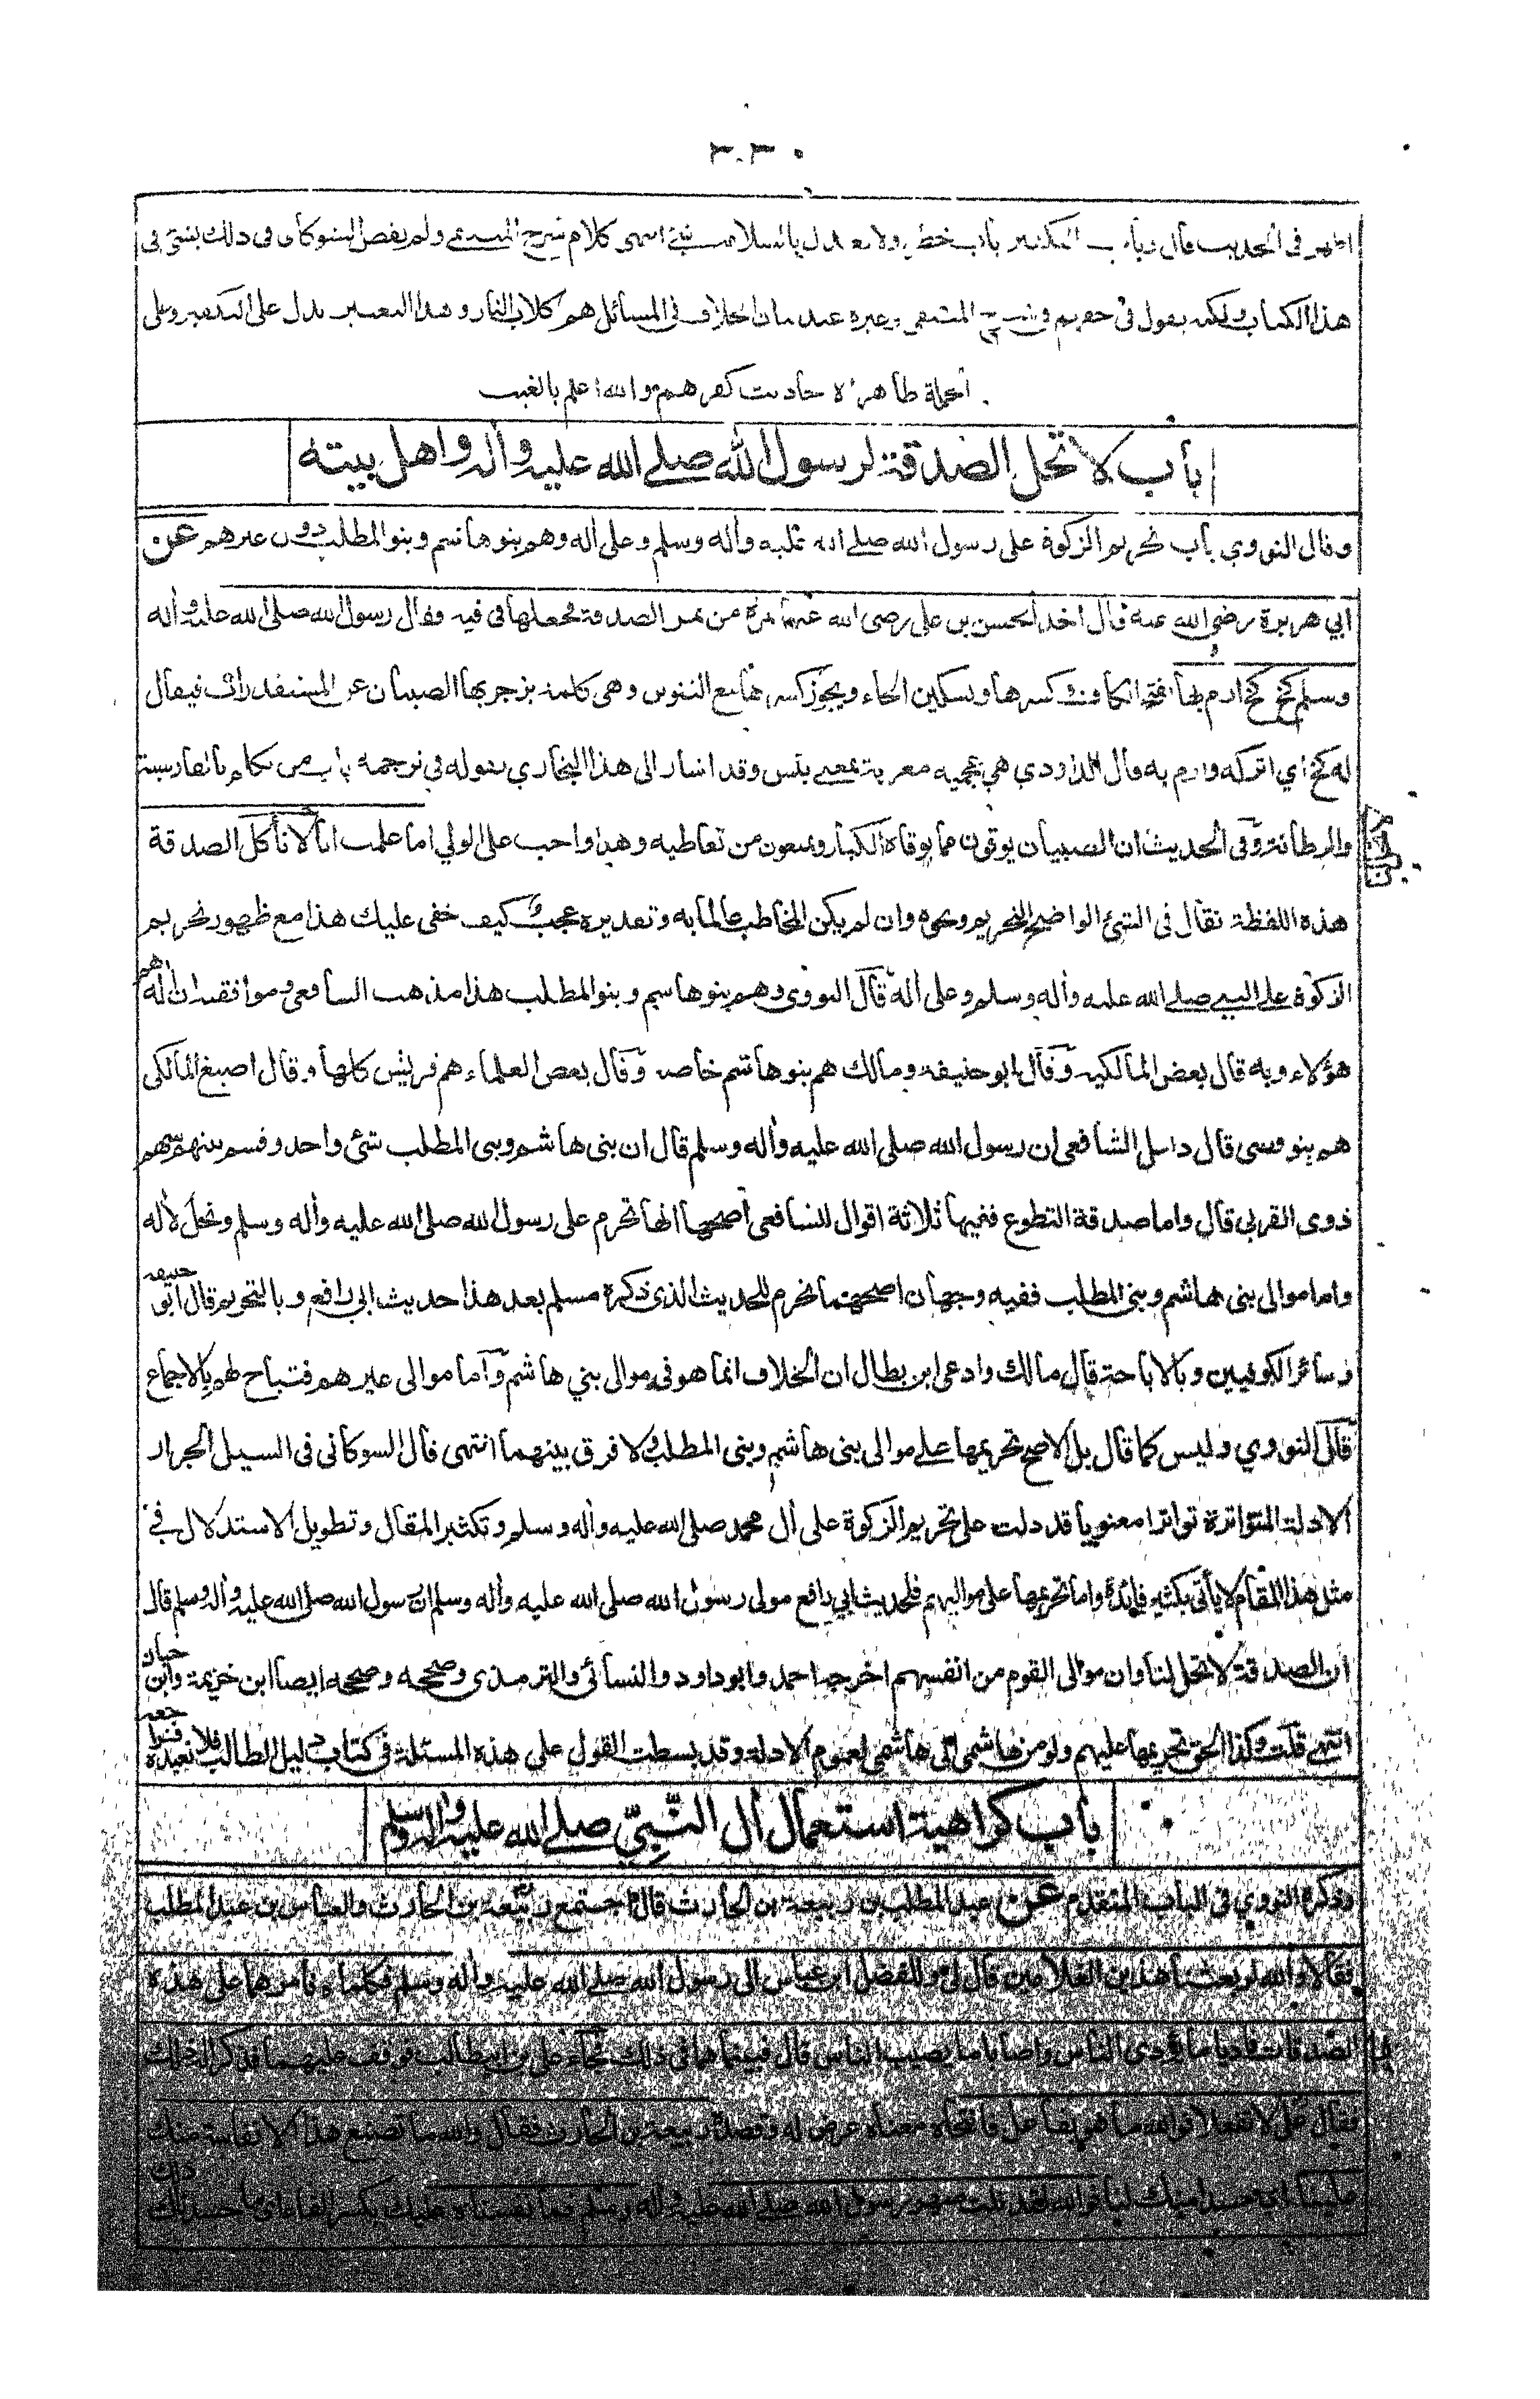 في الحديث قال وباب التكفير باب خطر ولا نعدل بالسلامة شيئا انتهى كلام شرح المسلم ولم يفض الشوكاني في ذلك بشئ في
هذا الكتاب ولكنه يقول في حقهم في شرح المنتقى وغيره عند بيان الخلاف في المسائل هم كلاب النار وهذا التعبير يدل على التكفير وعلى
الجملة ظاهر الاحاديث كفرهم والله اعلم بالغيب
باب لا تحل الصدقة لرسول الله صلى الله عليه وأله واهل بيته
وقال النووي باب تحريم الزكوة على رسول الله صلى الله عليه وأله وسلم وعلى أله وهم بنو هاشم وبنو المطلب دون غيرهم عن
ابي هريرة رضي الله عنه قال اخذ الحسن بن علي رضى الله عنهما تمرة من تمر الصدقة فجعلها في فيه فقال رسول الله صلى الله عليه وأله
وسلم كخ كخ ارم بها بفتح الكاف وكسرها وتسكين الخاء ويجوز كسرها مع التنوين وهي كلمة يزجر بها الصبيان عن المستقذرات فيقال
له كخ اي اتركه وارم به قال الداودي هي عجمية معربة بمعنى بئس وقد اشار الى هذا البخاري بقوله في ترجمة باب من تكلم بالفارسية
والرطانة وفي الحديث ان الصبيان يوقون مما يوقاه الكبار ويمنعون من تعاطيه وهذا واجب على الولي اما علمت انا لا نأكل الصدقة
هذه اللفظة تقال في الشئ الواضح التحريم ونحوه وان لم يكن المخاطب عالما به وتقديره عجب كيف خفى عليك هذا مع ظهور تحريم
الزكوة على النبي صلى الله عليه وأله وسلم وعلى أله قال النووى وهم بنو هاشم وبنو المطلب هذا مذهب الشافعى وموافقيه ان أله هم
هؤلاء وبه قال بعض المالكية وقال ابو حنيفة ومالك هم بنو هاشم خاصة وقال بعض العلماء هم قريش كلها وقال اصبغ المالكى
هم بنو قصى قال دليل الشافعى ان رسول الله صلى الله عليه وأله وسلم قال ان بنى هاشم وبنى المطلب شئ واحد وقسم بينهم سهم
ذوى القربى قال واما صدقة التطوع ففيها ثلاثة اقوال للشافعى اصحها انها تحرم على رسول الله صلى الله عليه وأله وسلم وتحل لأله
واما موالى بنى هاشم وبنى المطلب ففيه وجهان اصحهما تحرم للحديث الذى ذكره مسلم بعد هذا حديث ابى رافع وبالتحريم قال ابو حنيفه
وسائر الكوفيين وبالاباحة قال مالك وادعى ابن بطال ان الخلاف انما هو فى موالى بني هاشم واما موالى غيرهم فتباح لهم بالاجماع
قال النووي وليس كما قال بل الاصح تحريمها على موالى بنى هاشم وبنى المطلب ولا فرق بينهما انتهى قال الشوكانى فى السيل الجرار
الادلة المتواترة تواترا معنويا قد دلت على تحريم الزكوة على أل محمد صلى الله عليه وأله وسلم وتكثير المقال وتطويل الاستدلال في
مثل هذا المقام لا يأتى بكثير فائدة واما تحريمها على مواليهم فلحديث ابي رافع مولى رسول الله صلى الله عليه وأله وسلم ان رسول الله صلى الله عليه وأله وسلم قال
ان الصدقة لا تحل لنا وان موالى القوم من انفسهم اخرجه احمد وابو داود والنسائى والترمذى وصححه وصححه ايضا ابن خزيمة وابن حبان
انتهى قلت وكذا الحق تحريمها عليهم ولو من هاشمى الى هاشمى لعموم الادلة وقد بسطت القول على هذه المسئلة فى كتاب دليل الطالب فلا نعيده
باب كراهية استعمال أل النبي صلى الله عليه وأله وسلم
وذكره النووي فى الباب المتقدم عن عبد المطلب بن ربيعة بن الحارث قال اجتمع ربيعة بن الحارث والعباس بن عبد المطلب
فقالا والله لو بعثنا هذين الغلامين قال لى وللفضل ابن عباس الى رسول الله صلى الله عليه وأله وسلم فكلماه فامرهما على هذه
الصدقات فاديا ما يؤدى الناس واصابا مما يصيب الناس قال فبينما هما في ذلك جاء علي بن ابى طالب فوقف عليهما فذكرا له ذلك
فقال علي لا تفعلا فوالله ما هو بفاعل فانتحاه معناه عرض له وقصده ربيعة بن الحارث فقال والله ما تصنع هذا الا نفاسة منك
علينا اي حسدا منك لنا فوالله لقد نلت صهر رسول الله صلى الله عليه وأله وسلم فما نفسناه عليك بكسر الفاء اى ما حسدناك ذلك